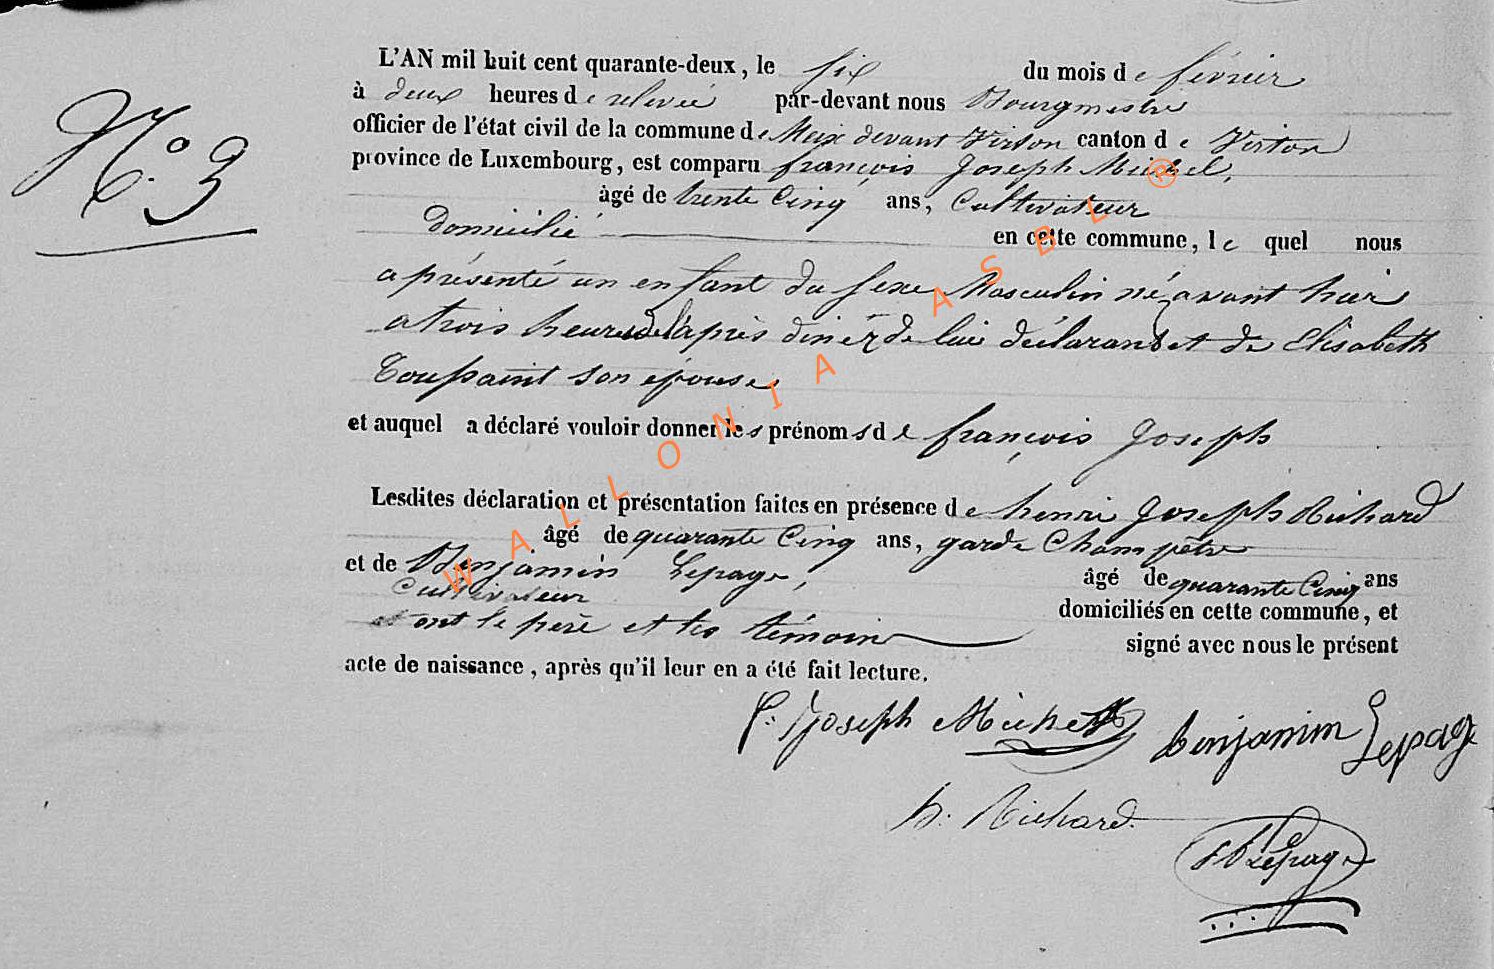 N.o 3
L'AN mil huit cent quarante-deux, le six du mois de février
à deux heures de relevée par-devant nous Bourgmestre
officier de l'état civil de la commune de Meix devant Virton canton de Virton
province de Luxembourg, est comparu françois Joseph Michel,
âgé de trente Cinq ans, Cultivateur
domicilié en cette commune, le quel nous
a présenté un enfant du sexe Masculin né avant hier
a trois heures de l'après diner de lui déclarant et de Elisabeth
Toussaint son épouse
et auquel a déclaré vouloir donner les prénoms de françois Joseph
Lesdites déclaration et présentation faites en présence de henri Joseph Richard
âgé de quarante Cinq ans, garde Champêtre
et de Benjamin Lepage, âgé de quarante Cinq ans
Cultivateur domiciliés en cette commune, et
ont le père et les témoins signé avec nous le présent
acte de naissance, après qu'il leur en a été fait lecture.
f. Joseph Michel
benjamin Lepage
h. Richard
Lepage
WALLONIA ASBL ®